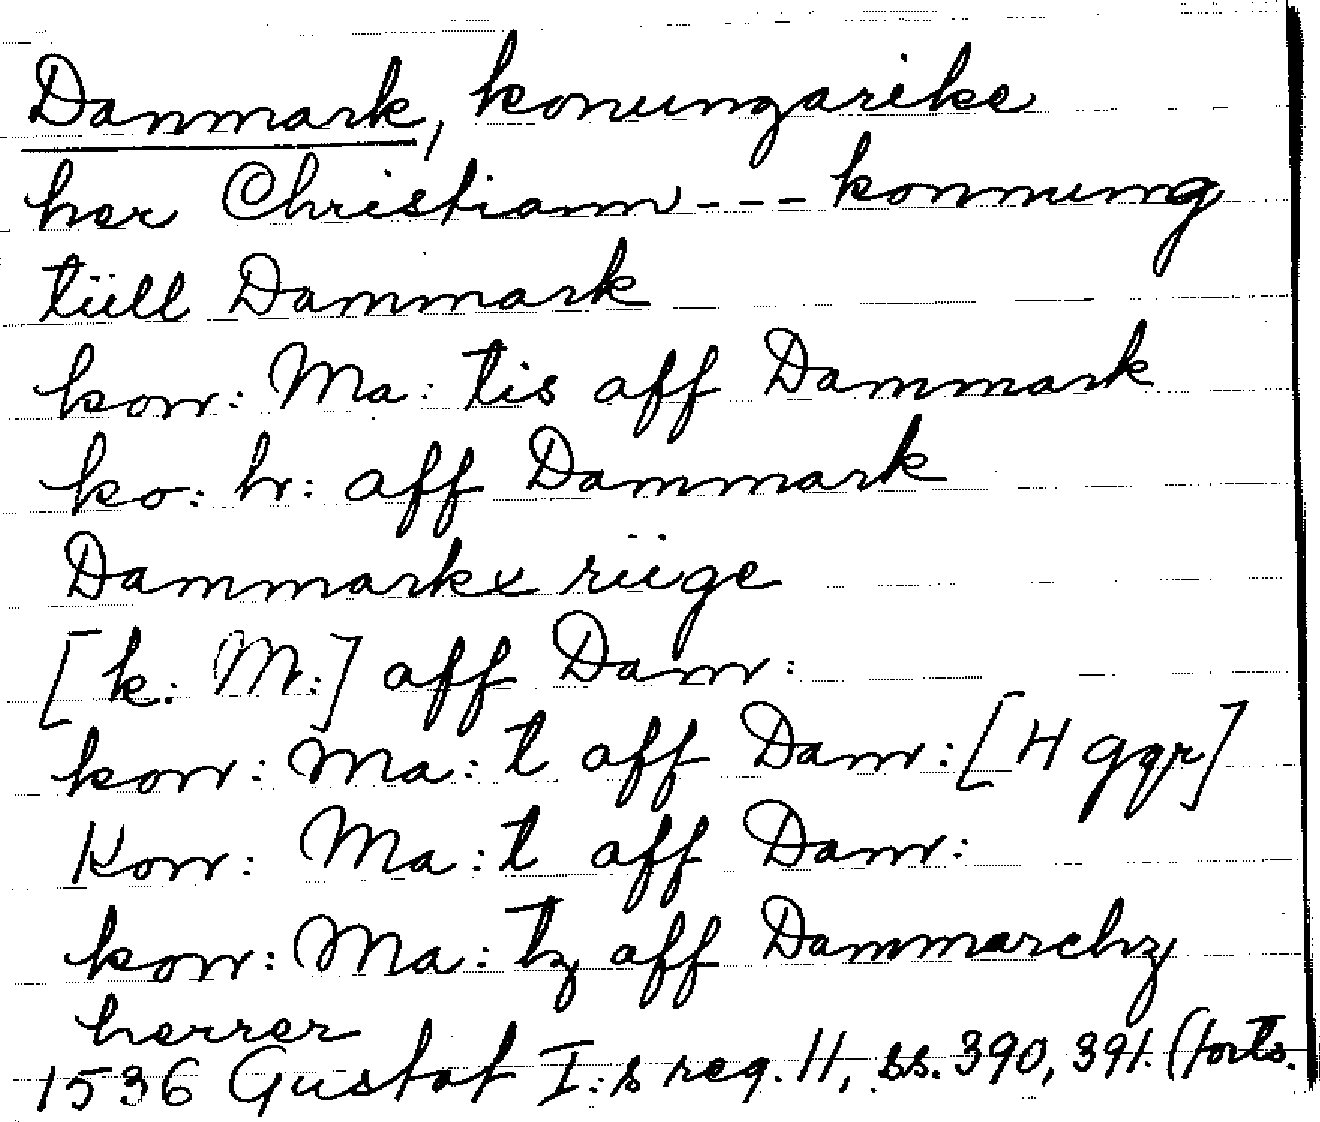 Danmark, konungarike
her Christiann --- konnung
tiill Dammark
kon: Ma: tis aff Dammark
ko: h: aff Dammark
Dammarkx riige
[k. M:] aff Dan:
kon: Ma: t aff Dan: [4 ggr]
Kon: Ma: t aff Dan:
kon: Ma: tz aff Dammarchz
herrer
1536 Gustaf I:s reg. 11, ss. 390, 391. (forts.